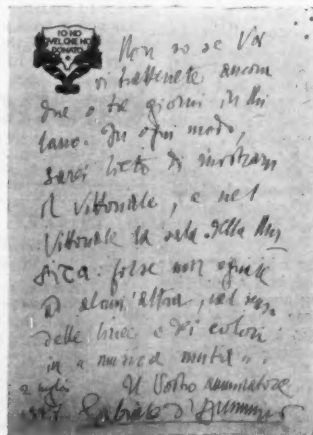 IO HO
QUEL CHE HO
DONATO
Non so se Voi
vi trattenete ancora
due o tre giorni in Mi
lano. In ogni modo,
sarei lieto di mostrarvi
il Vittoriale, e nel
Vittoriale la sala della Mu
sica: forse non eguale
ad alcun'altra, nel
delle linee e dei colori
in "musica muta".
Il Vostro ammiratore
Gabriele d'Annunzio